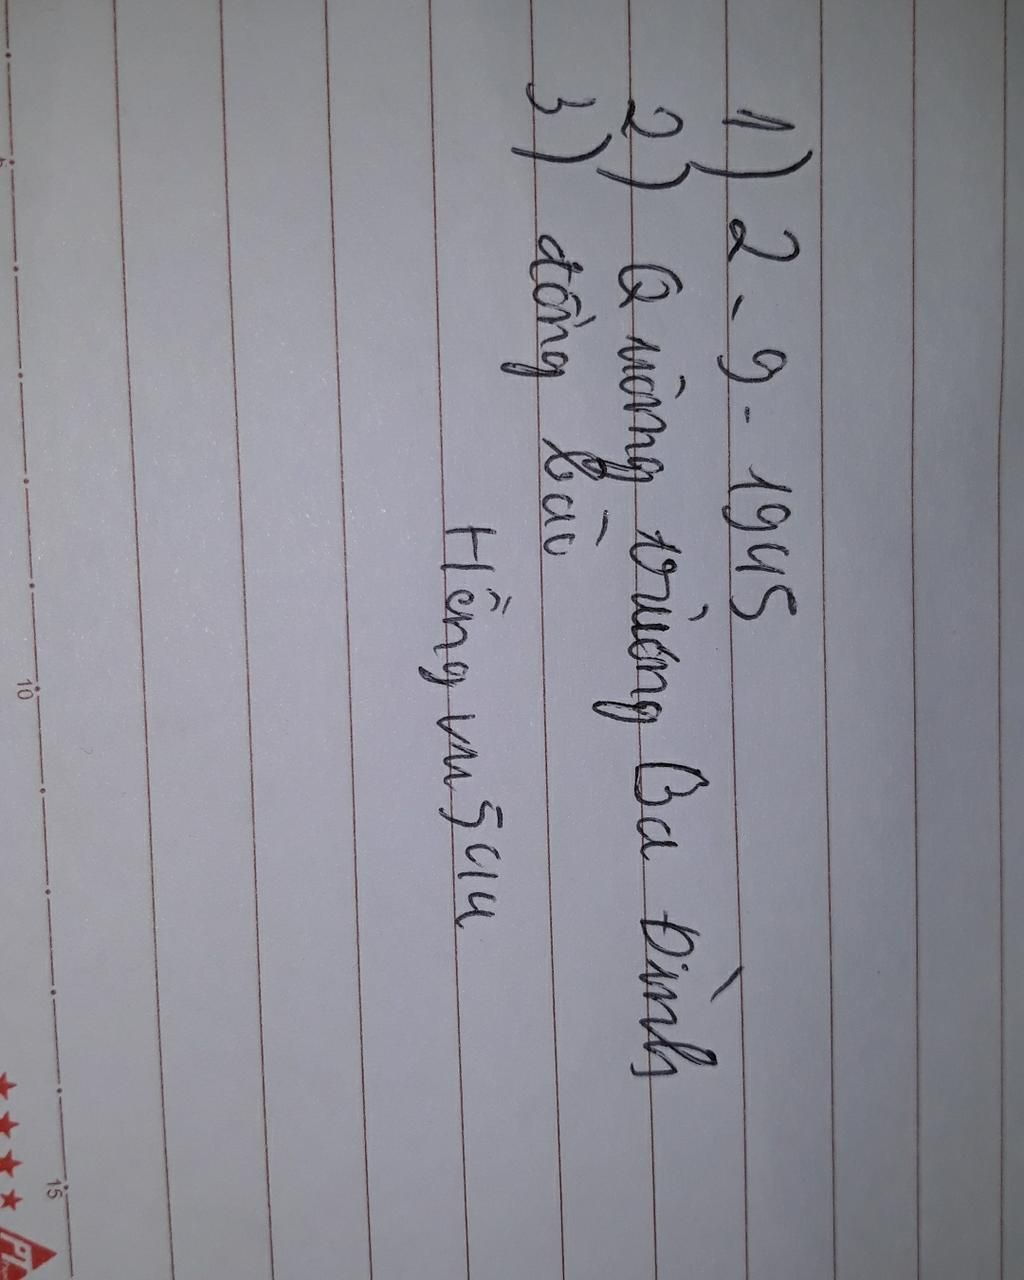 1) 2-9-1945
2) Quảng trường Ba Đình
3) đồng bào
10
15